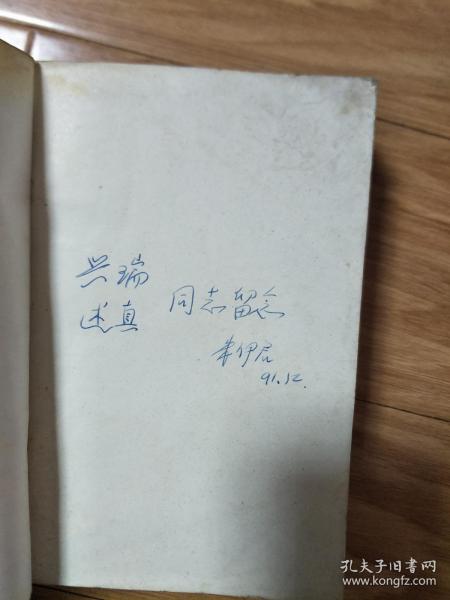 兴瑞
述真 同志留念
伊启
91.12.
孔夫子旧书网
www.kongfz.com